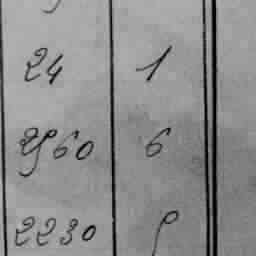 24 1
2960 6
2230